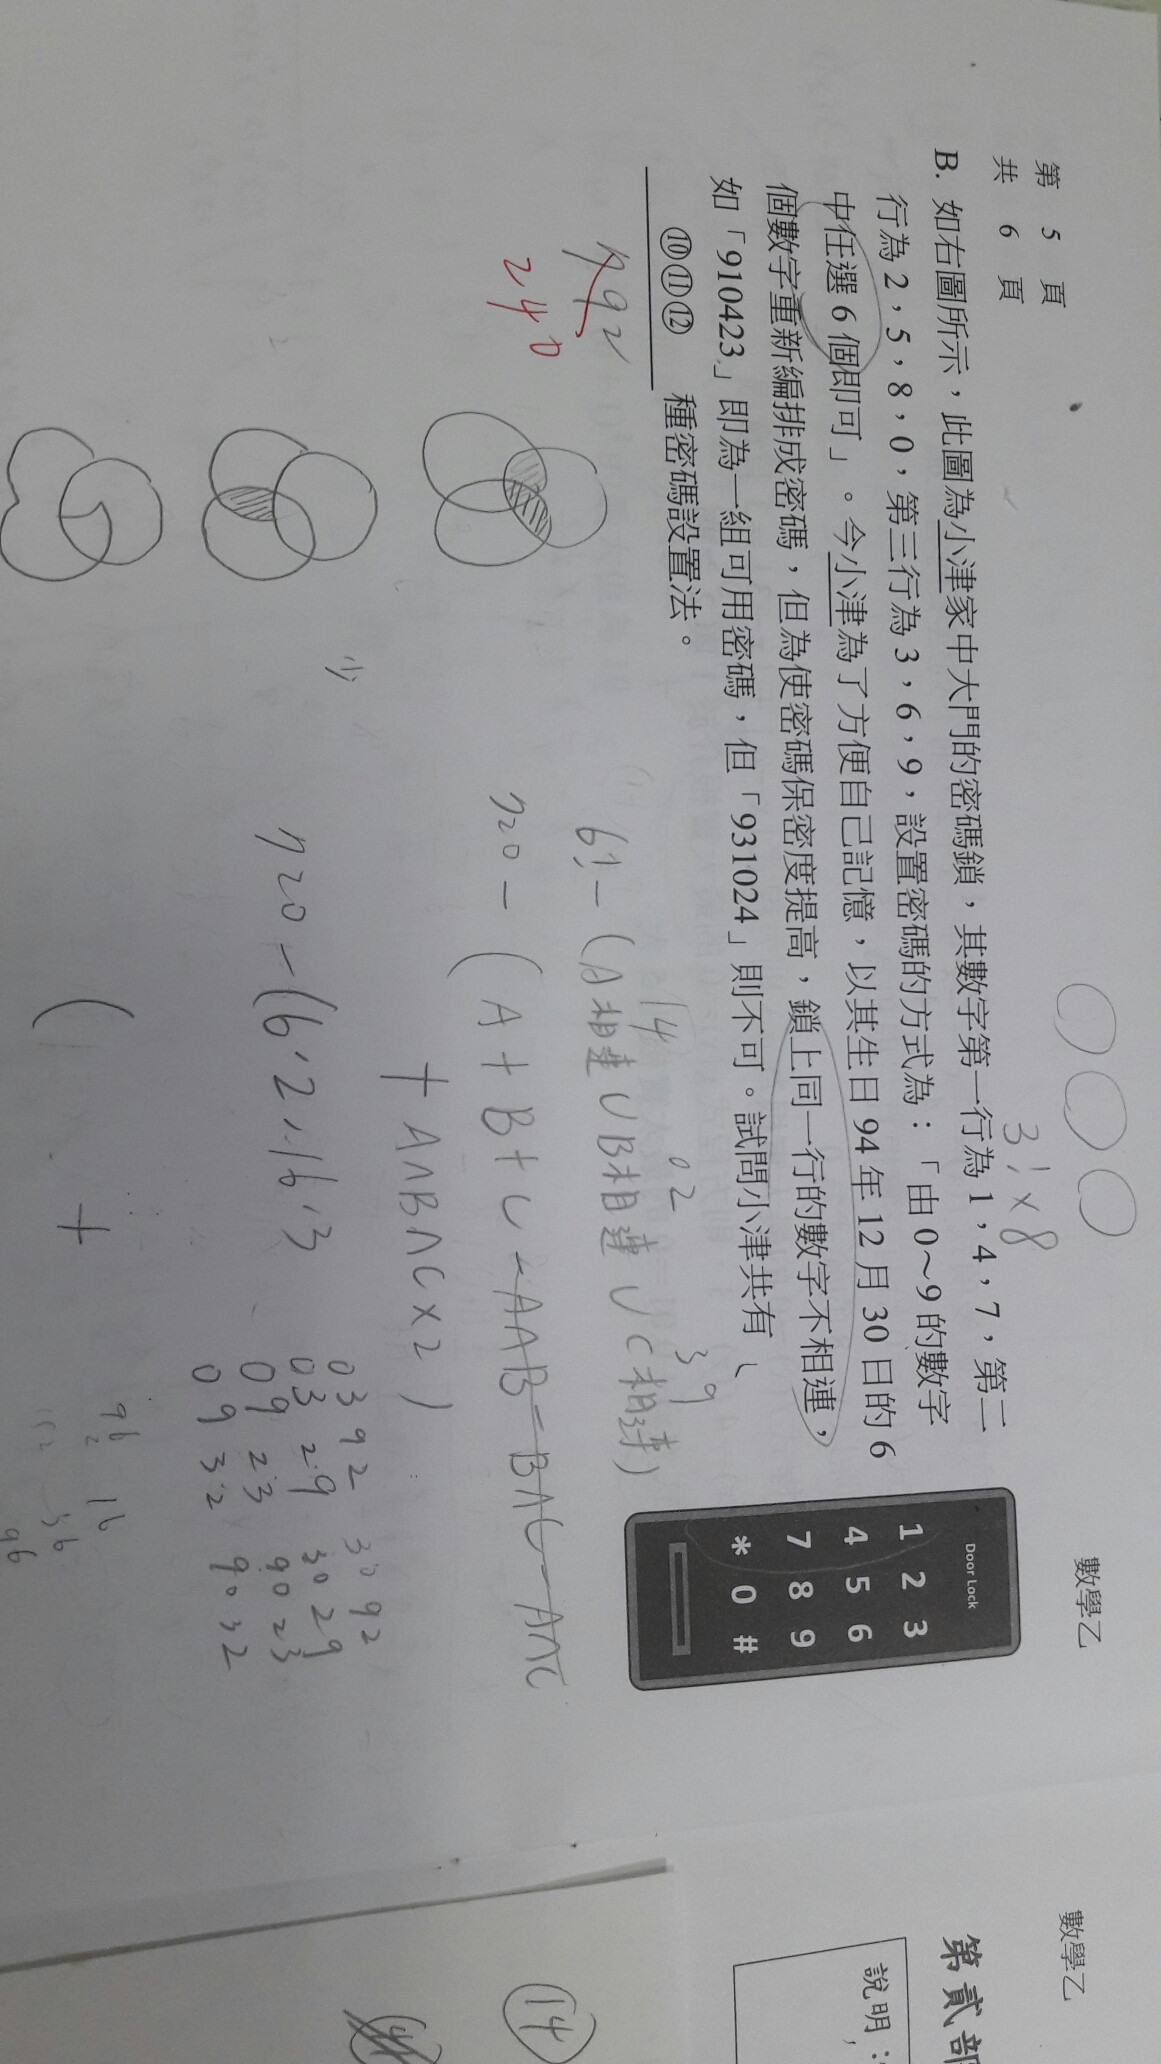 第 5 頁
共 6 頁
數學乙
3! × 8
B. 如右圖所示，此圖為小津家中大門的密碼鎖，其數字第一行為 1，4，7，第二
行為 2，5，8，0，第三行為 3，6，9，設置密碼的方式為：「由 0～9 的數字
中任選 6 個即可」。今小津為了方便自己記憶，以其生日 94 年 12 月 30 日的 6
個數字重新編排成密碼，但為使密碼保密度提高，鎖上同一行的數字不相連，
如「910423」即為一組可用密碼，但「931024」則不可。試問小津共有
⑩⑪⑫ 種密碼設置法。
Door Lock
1 2 3
4 5 6
7 8 9
* 0 #
240
14 02 39
6! - (A相連 ∪ B相連 ∪ C相連)
720 - (A + B + C - A∩B - B∩C - A∩C
+ A∩B∩C × 2)
0 3 9 2
0 3 2 9
0 9 2 3
0 9 3 2
3 0 9 2
3 0 2 9
9 0 2 3
9 0 3 2
( +
96
2
16
96
數學乙
第貳部
說明：
14